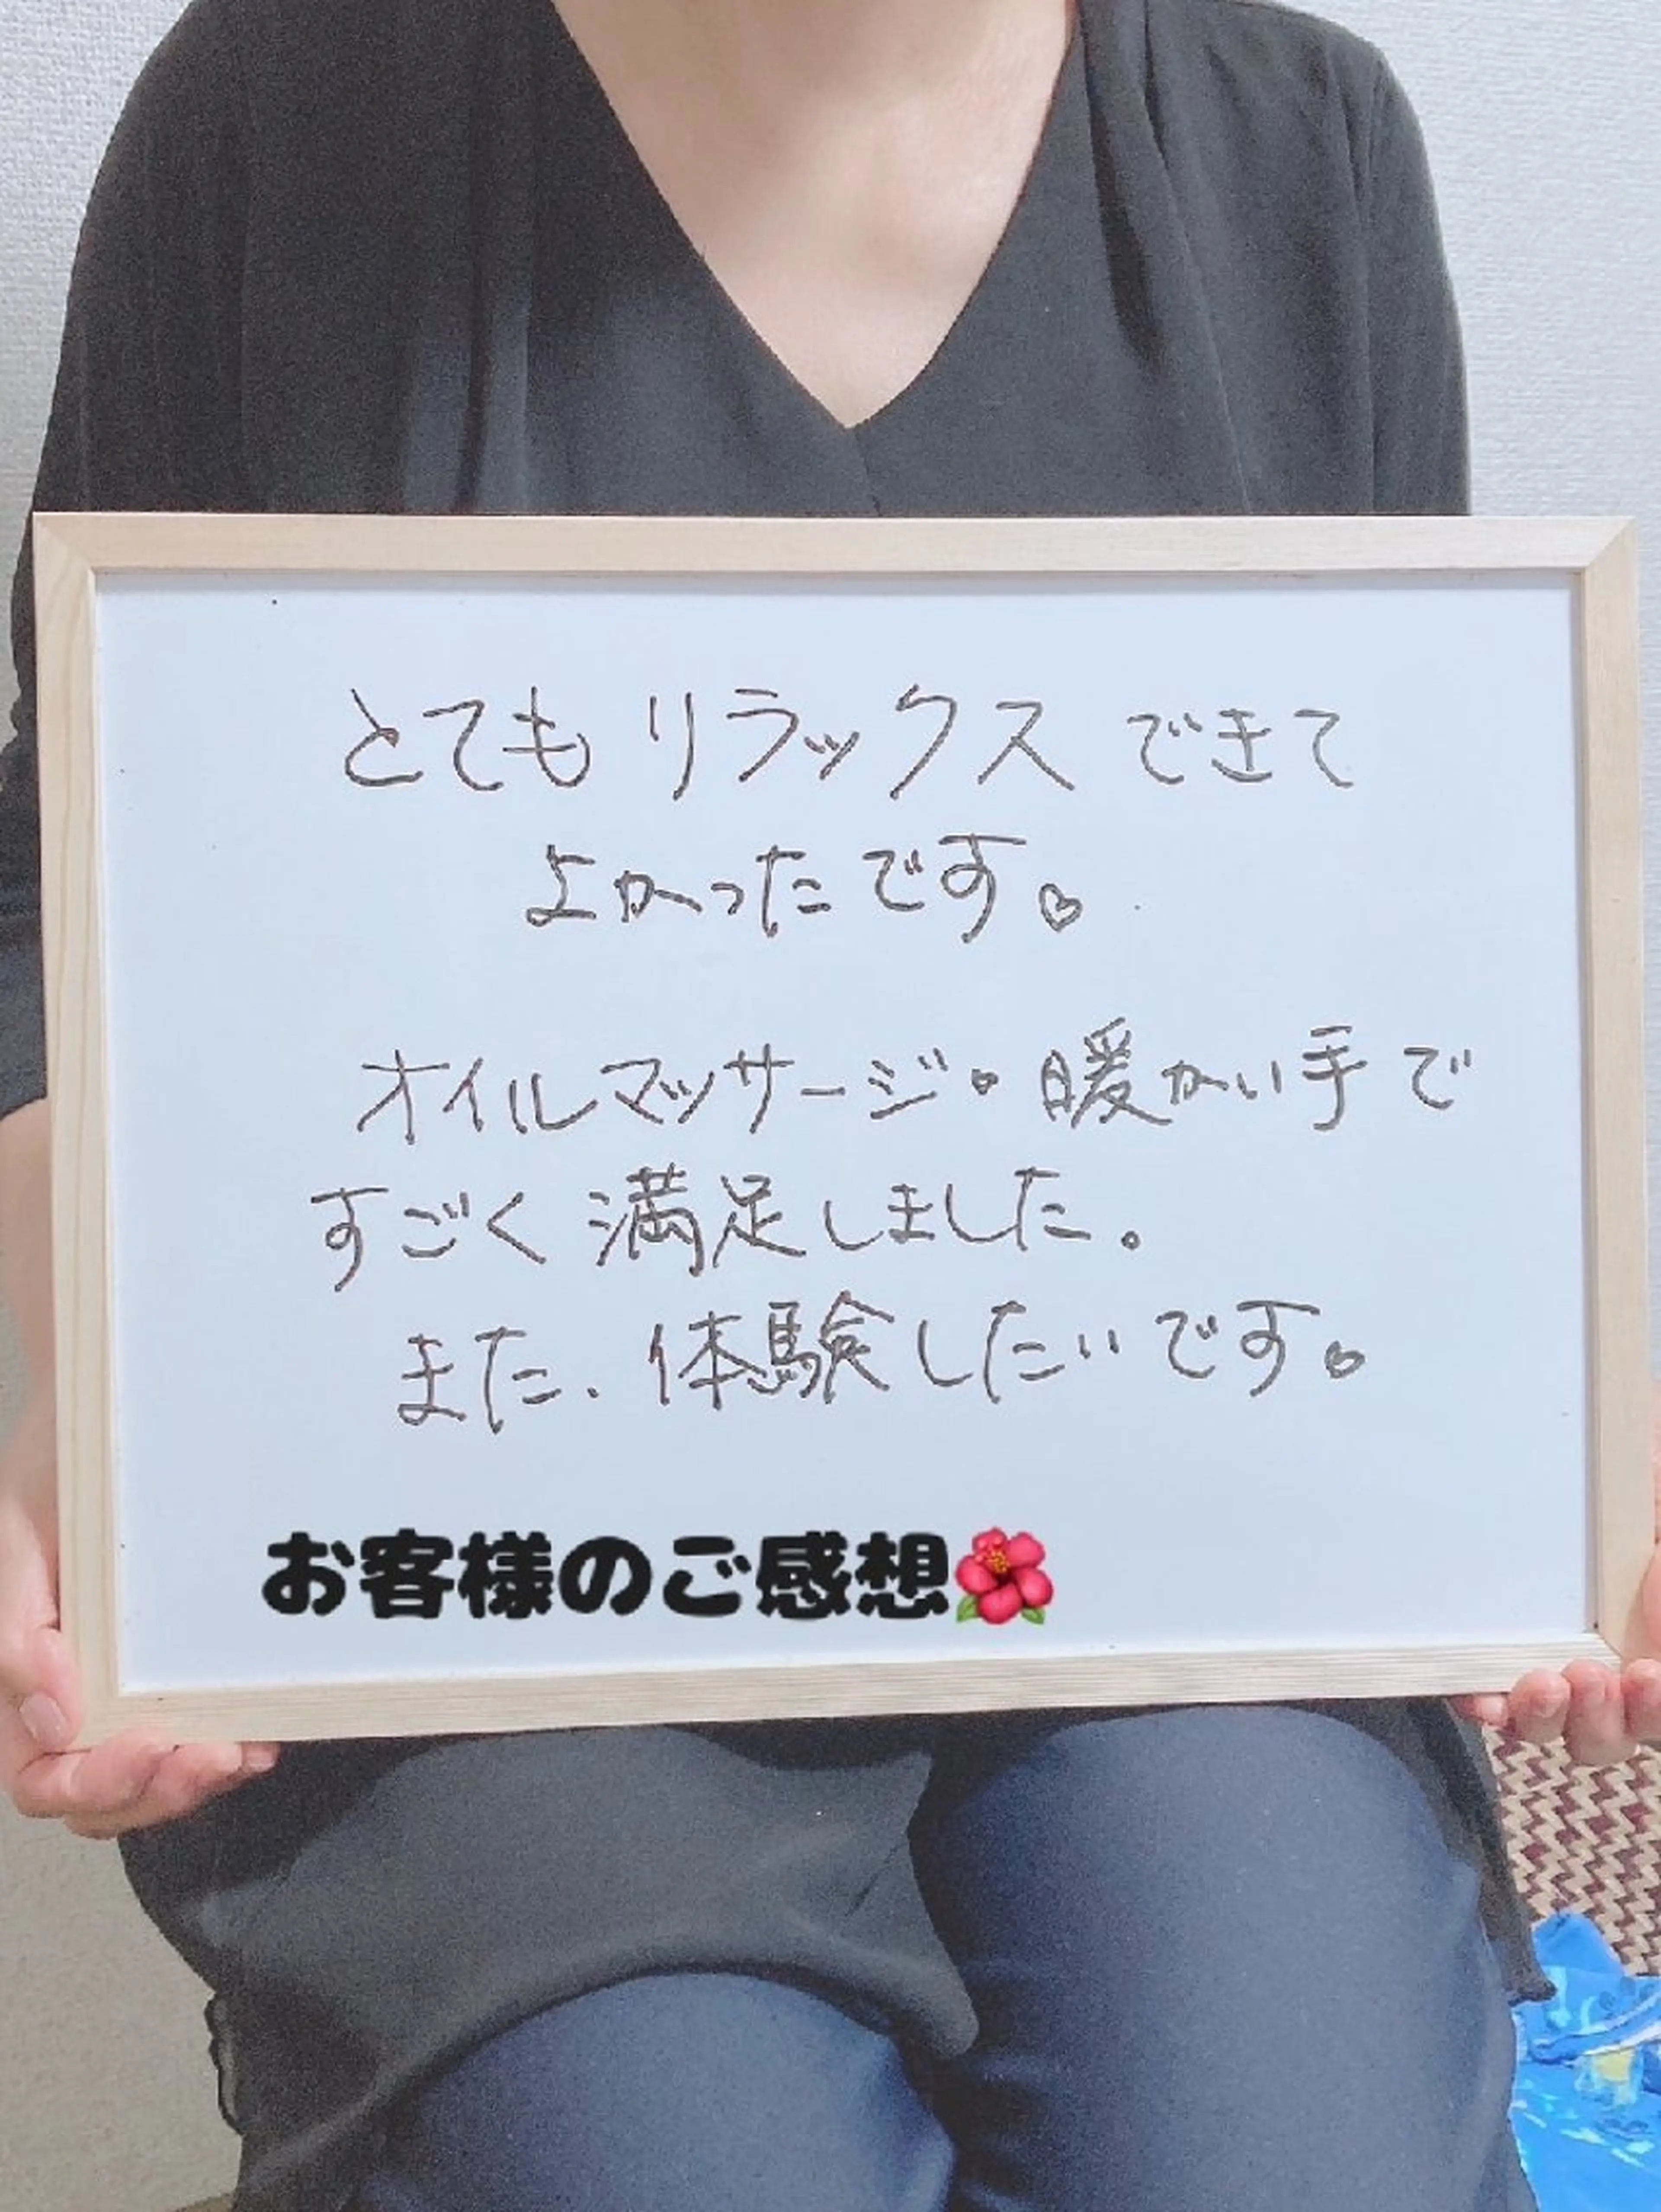 とてもリラックスできて
よかったです♡
オイルマッサージ・暖かい手で
すごく満足しました。
また、体験したいです。
お客様のご感想🌺